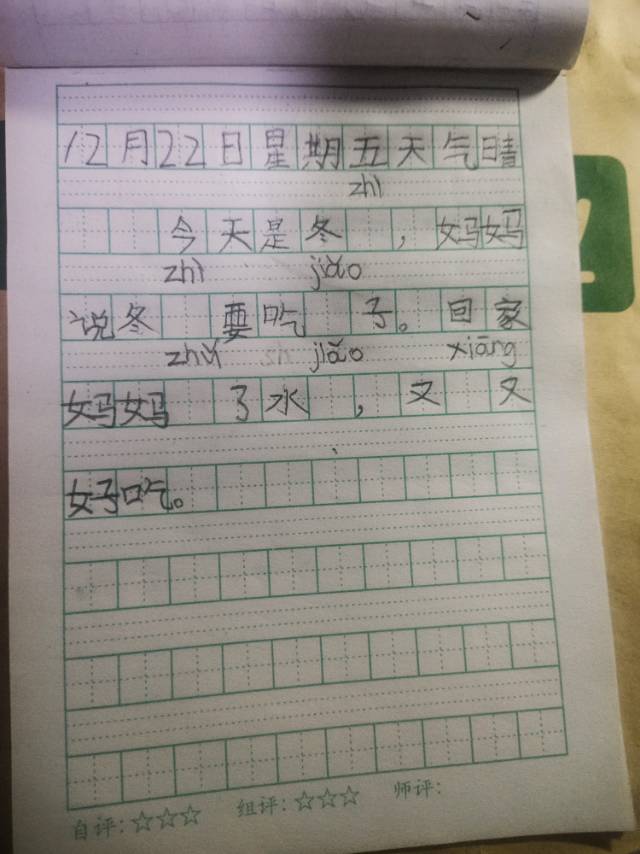 12月22日星期五天气晴
zhì
今天是冬 ，妈妈
zhì jiǎo
说冬 要吃 子。回家
zhǔ jiǎo xiāng
妈妈 了水 ，又 又
好吃。
自评：☆☆☆ 组评：☆☆☆ 师评：